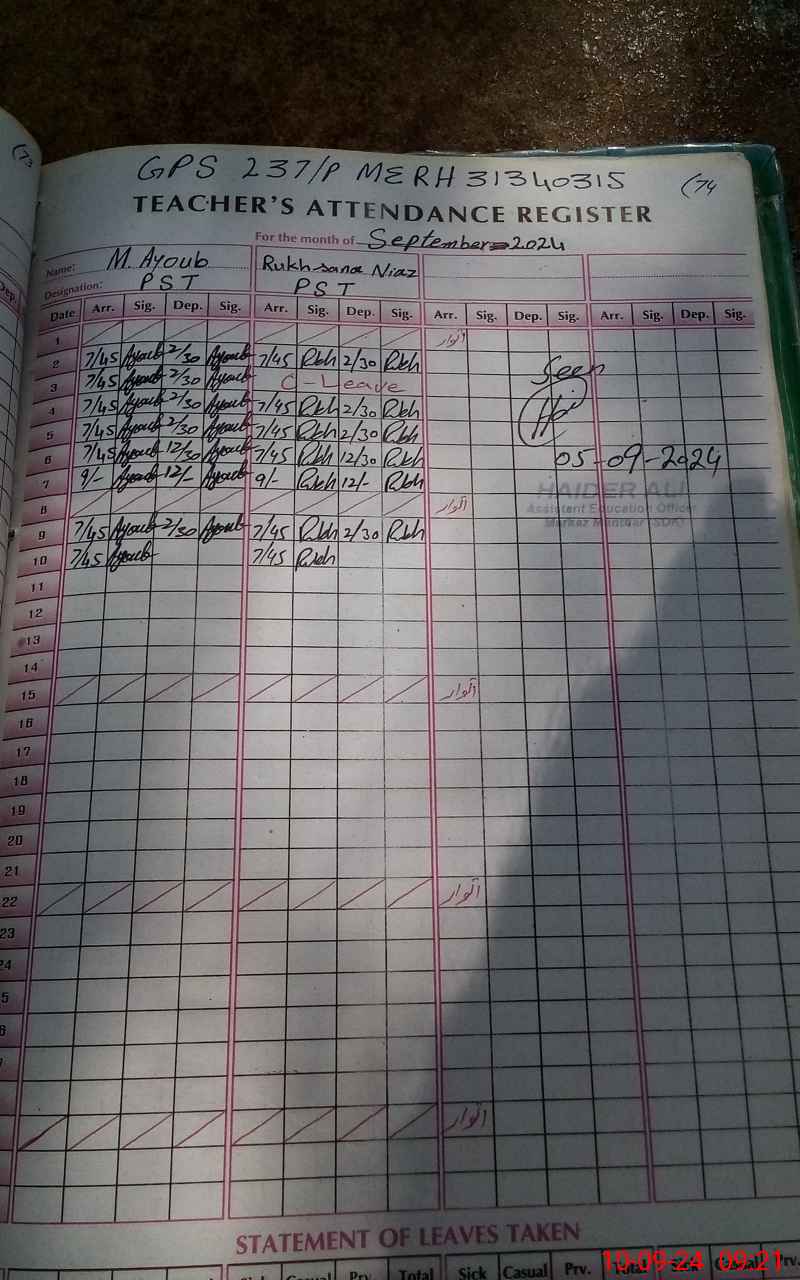 (73
GPS 237/P MERH 31340315 (74
TEACHER'S ATTENDANCE REGISTER
For the month of September-2024
Name: M. Ayoub Rukhsana Niaz
Designation: PST PST
Dep.
Date Arr. Sig. Dep. Sig. Arr. Sig. Dep. Sig. Arr. Sig. Dep. Sig. Arr. Sig. Dep. Sig.
1 اتوار
2 7/45 Ayoub 2/30 Ayoub 7/45 Rukh 2/30 Rukh Seen
3 7/45 Ayoub 2/30 Ayoub C-Leave
4 7/45 Ayoub 2/30 Ayoub 7/45 Rukh 2/30 Rukh
5 7/45 Ayoub 2/30 Ayoub 7/45 Rukh 2/30 Rukh
6 7/45 Ayoub 12/30 Ayoub 7/45 Rukh 12/30 Rukh 05-09-2024
7 9/- Ayoub 12/- Ayoub 9/- Rukh 12/- Rukh HAIDER ALI
8 اتوار Assistant Education Officer
9 7/45 Ayoub 2/30 Ayoub 7/45 Rukh 2/30 Rukh Markaz (SDK)
10 7/45 Ayoub 7/45 Rukh
11
12
13
14
15 اتوار
16
17
18
19
20
21
22 اتوار
23
24
5
6
اتوار
STATEMENT OF LEAVES TAKEN
Sick Casual Prv. Total Sick Casual Prv. Total Sick Casual Prv.
10-09-24 09:21